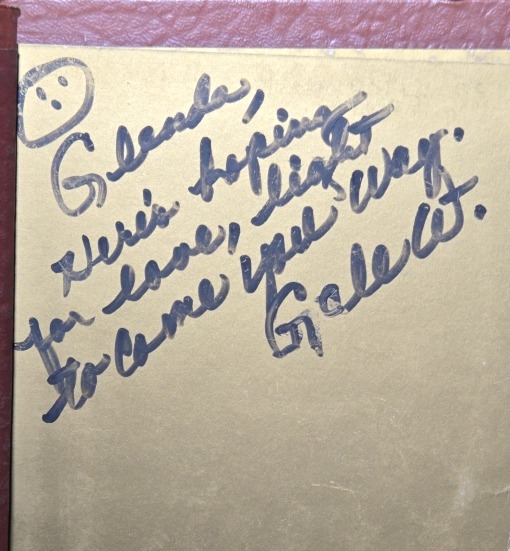 Glenda,
Here's hoping
for love, light
to come your way.
Gale W.